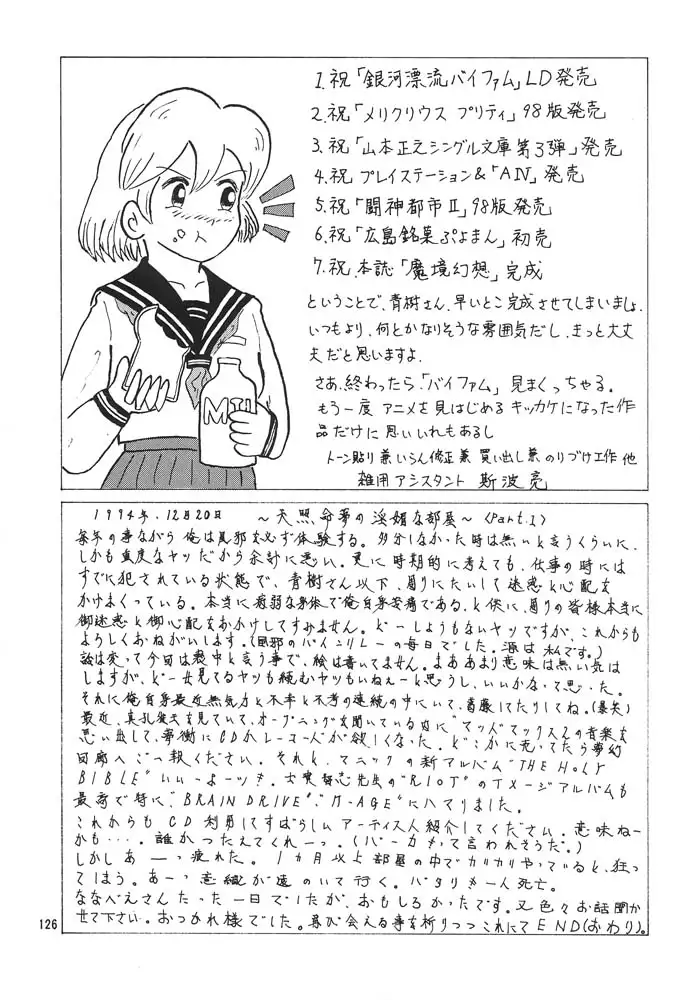 1.祝「銀河漂流バイファム」LD発売
2.祝「メリクリウス プリティ」98版発売
3.祝「山本正之シングル文庫第3弾」発売
4.祝 プレイステーション&「AIV」発売
5.祝「闘神都市II」98版発売
6.祝「広島銘菓ぷよまん」初売
7.祝.本誌「魔境幻想」完成
ということで、青樹さん、早いとこ完成させてしまいましょ、
いつもより、何とかなりそうな雰囲気だし、きっと大丈
夫だと思いますよ.
さあ、終わったら、「バイファム」見まくっちゃる。
もう一度アニメを見はじめるキッカケになった作
品だけに思いいれもあるし
トーン貼り兼いらん修正兼買い出し兼のりづけ工作他
雑用アシスタント 斯波亮
MIL
1994年.12月20日 ～天照命夢の淫媚な部屋～〈Part.1〉
毎年の事ながら俺は風邪を必ず体験する。多分しなかった時は無いと言うくらいに、
しかも重度なヤツだから余計に悪い。更に時期的に考えても、仕事の時には
すでに犯されている状態で、青樹さん以下、周りにたいして迷惑と心配を
かけまくっている。本当に病弱な身体で俺自身苦痛である、と供に、周りの皆様本当に
御迷惑と御心配をおかけしてすみません。どーしょうもないヤツですが、これからも
よろしくおねがいします。(風邪のバイニリレーの毎日でした。源は私です。)
話は変って今回は喪中と言う事で、絵は書いてません。まああまり意味は無い気は
しますが、どー女見てるヤツも読むヤツもいねぇーと思うし、いいかなって思った。
それに俺自身最近無気力と不幸と不考の連続の中にいて、葛藤してたりしてね。(暴笑)
最近、真孔雀王を見ていて、オープニングを聞いている内に"マッドマックス2の音楽を
思い出して、夢衝にCDかレコードが欲しくなった。どこかに売ってたら夢幻
回廊へご一報ください。それと、マニックの新アルバム"THE HOLY
BIBLE"いいーよーッ!
先生の"RIOT"のイメージアルバムも
最高で特に、"BRAIN DRIVE"、"M-AGE"にハマりました。
これからもCD利男してすばらしいアーティスト紹介してください。意味ねー
かも…。誰かつたえてくれーっ。(バーカもって言われそうだ。)
しかしあーっ疲れた。1カ月以上部屋の中でカリカリやっていると、狂っ
てしまう。あーっ意織が遠のいて行く。バタリ 一人死亡。
ななべえさんたった一日でしたが、おもしろかったです。又色々お話聞か
せて下さい。おつかれ様でした。再び会える事を祈りつつこれにてEND(おわり)。
126